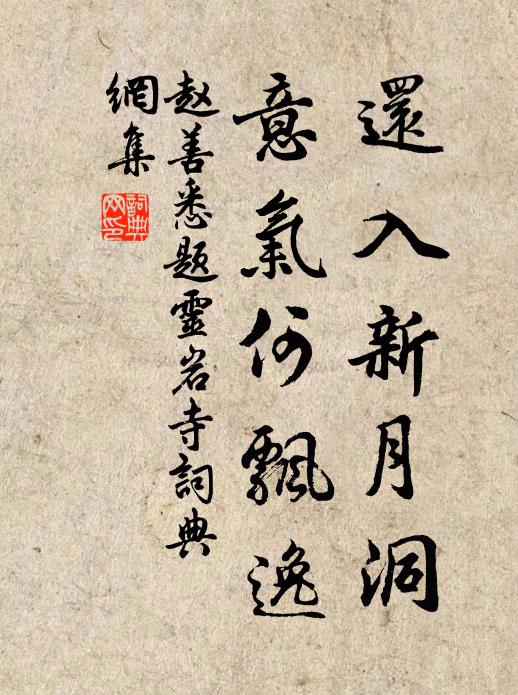 還入新月洞
意氣何飄逸
赵善悉題靈岩寺詞典
網集
詞典
网印